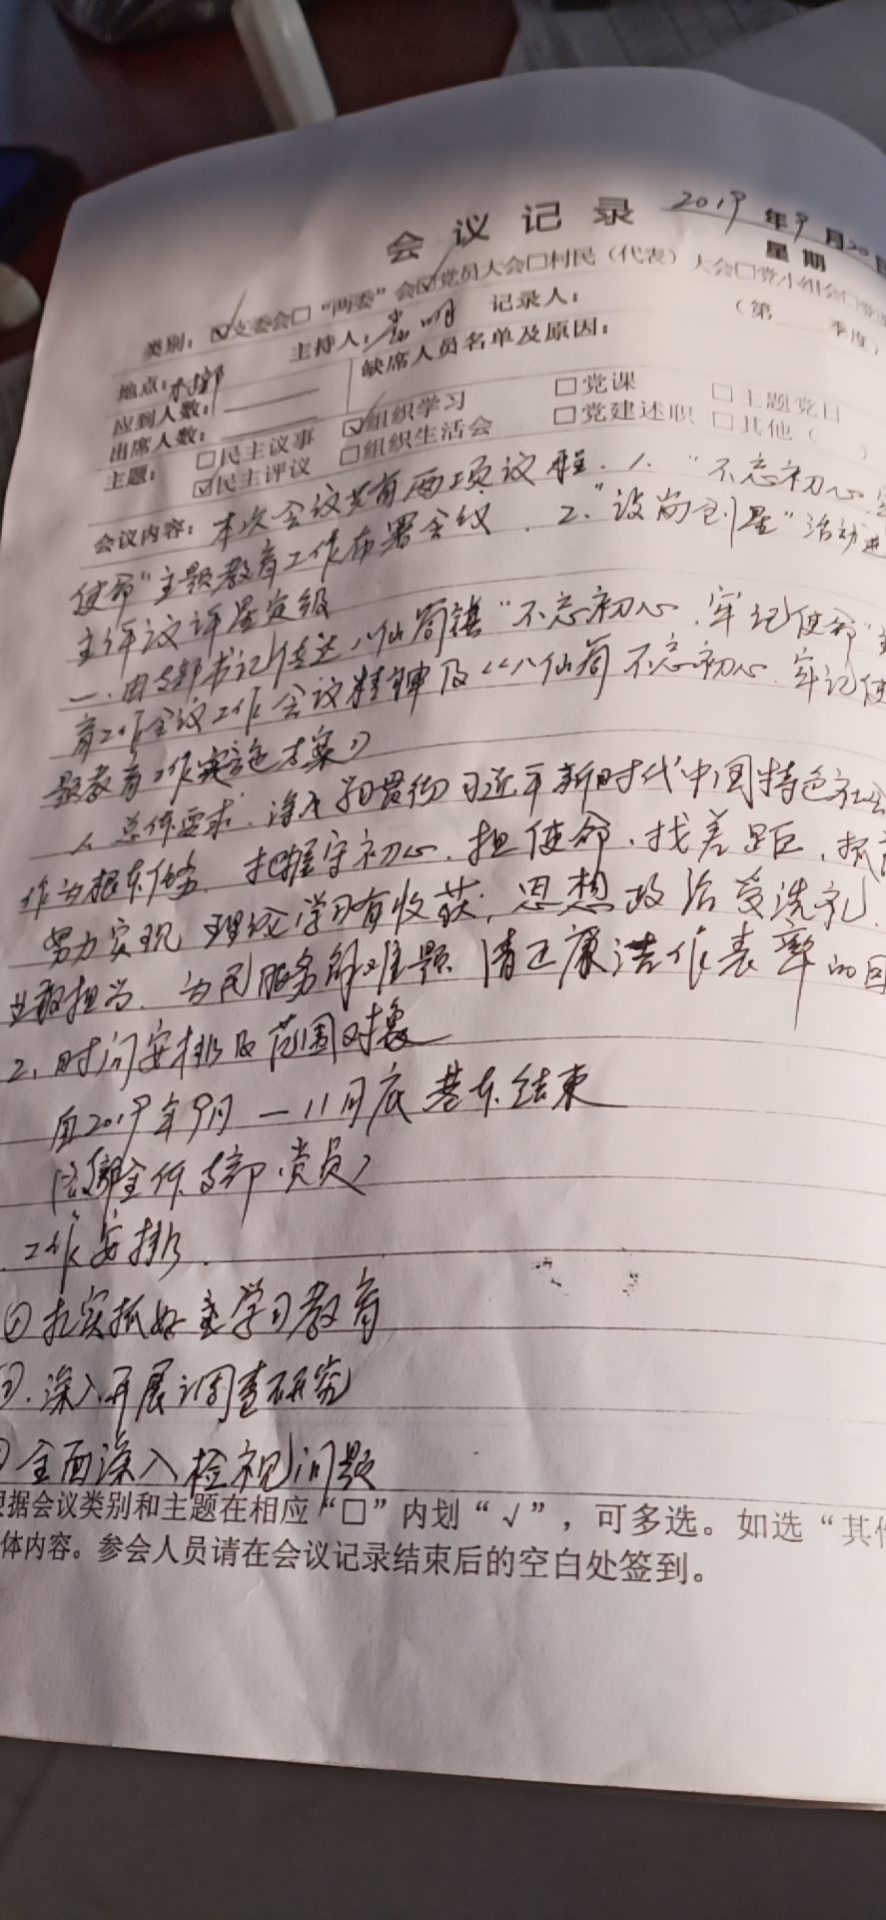 会 议 记 录 2019 年 9 月 20 日
星 期
类别: ☑支委会□“两委”会☑党员大会□村民（代表）大会□党小组会□党
（第 季度）
地点: 村部 主持人: 记录人:
应到人数: 缺席人员名单及原因:
出席人数:
主题: □民主议事 ☑组织学习 □党课 □主题党日
☑民主评议 □组织生活会 □党建述职 □其他（ ）
会议内容: 本次会议共有两项议程. 1. “不忘初心.
使命”主题教育工作布署会议. 2.“设岗创星”活动
主评议评星定级
一.由支部书记传达八仙筒镇“不忘初心.牢记使命”
育工作会议工作会议精神及《八仙筒 不忘初心.牢记使
题教育工作实施方案》
1. 总体要求.深入学习贯彻习近平新时代中国特色社会
作为根本任务. 把握守初心、担使命、找差距、抓
努力实现 理论学习有收获, 思想政治受洗礼.
业敢担当. 为民服务解难题 清正廉洁作表率的目
2. 时间安排及范围对象
自2019年9月—11月底基本结束
全体支部.党员)
.工作安排.
①扎实抓好主学习教育
.深入开展调查研究
全面深入检视问题
根据会议类别和主题在相应“□”内划“√”，可多选。如选“其他
体内容。参会人员请在会议记录结束后的空白处签到。